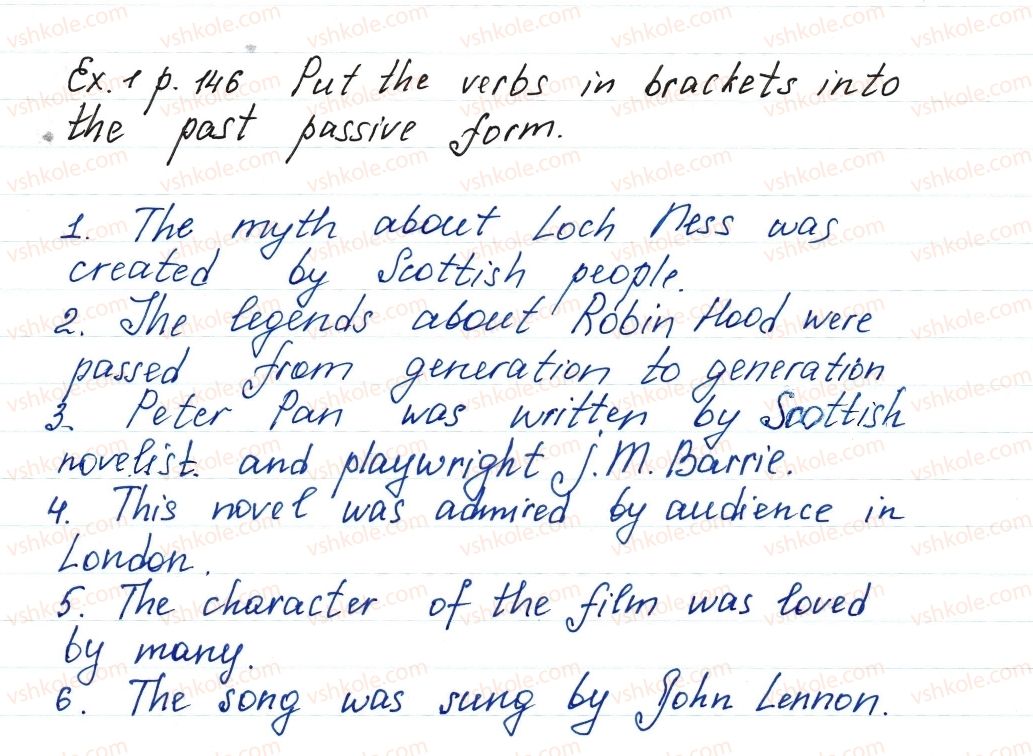 Ex. 1 p. 146 Put the verbs in brackets into
the past passive form.
1. The myth about Loch Ness was
created by Scottish people.
2. The legends about Robin Hood were
passed from generation to generation
3. Peter Pan was written by Scottish
novelist. and playwright J.M. Barrie.
4. This novel was admired by audience in
London.
5. The character of the film was loved
by many.
6. The song was sung by John Lennon.